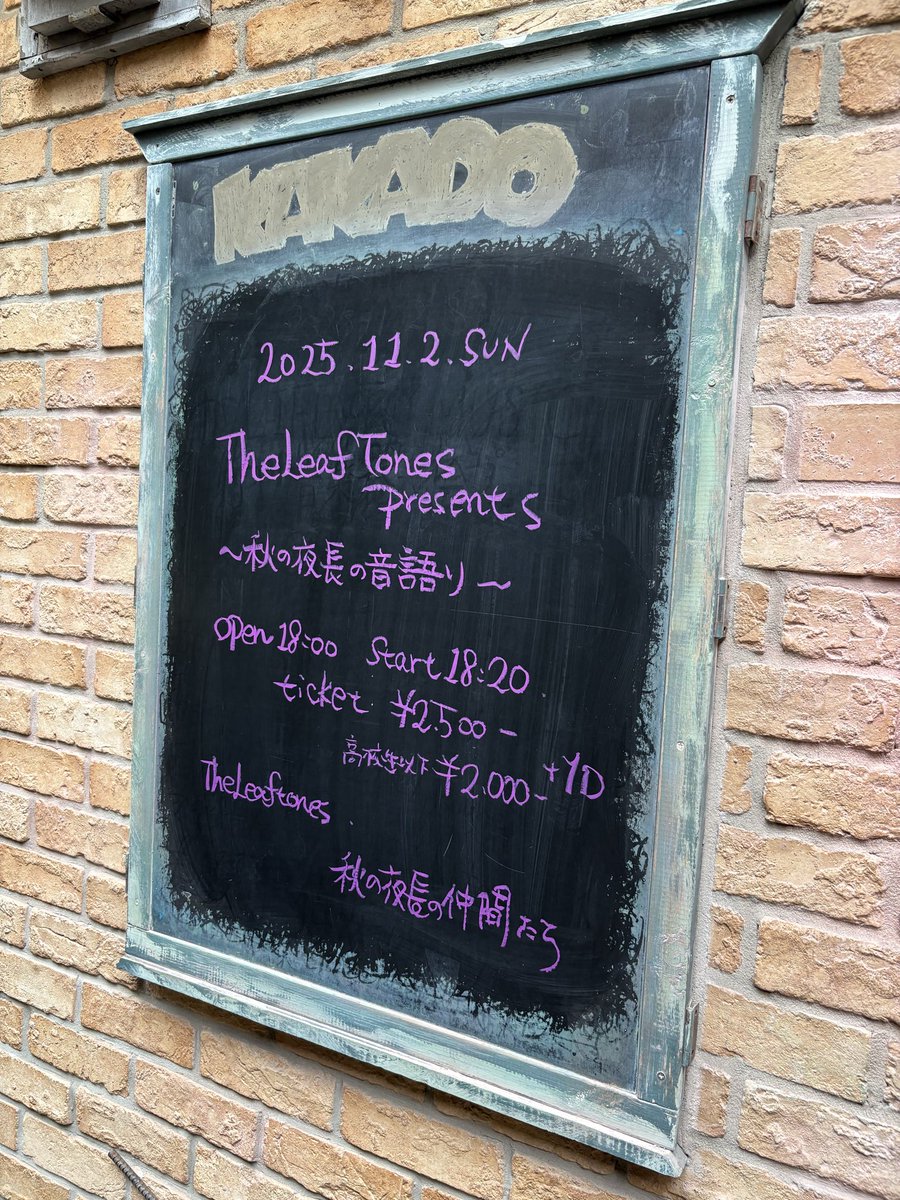 KAKADO
2025.11.2.SUN
TheLeafTones
presents
〜秋の夜長の音語り〜
open 18:00 Start 18:20
ticket ¥2.500-
高校生以下 ¥2.000- +1D
TheLeaftones
秋の夜長の仲間たち